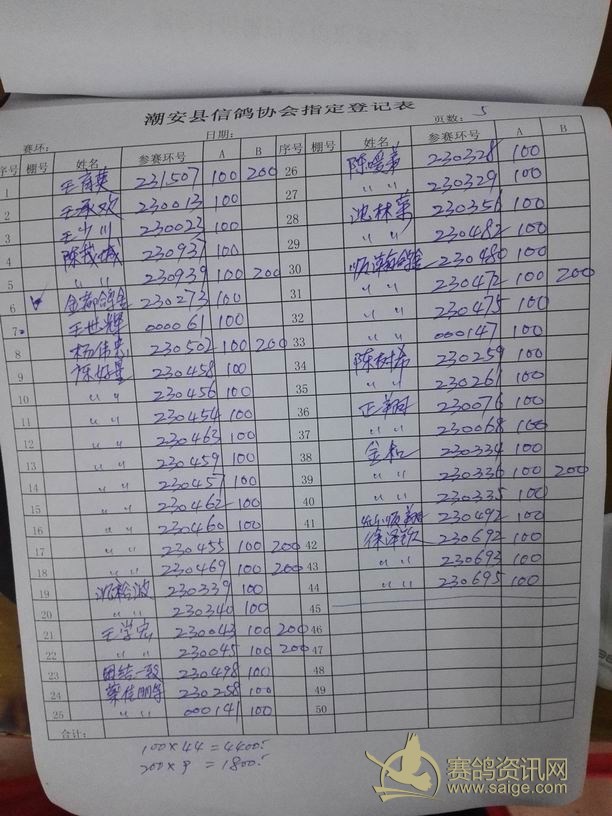 潮安县信鸽协会指定登记表
赛环： 日期： 页数：5
序号 棚号 姓名 参赛环号 A B 序号 棚号 姓名 参赛环号 A B
1 231507 100 200 26 230328 100
2 王承欢 230013 100 27 〃 〃 230329 100
3 王少川 230023 100 28 沈林第 230356 100
4 230937 100 29 〃 〃 230482 100
5 〃 〃 230939 100 200 30 顺瀚鸽舍 230480 100
6 金都鸽舍 230273 100 31 〃 〃 230472 100 200
7 王世辉 000061 100 32 〃 〃 230475 100
8 杨伟忠 230502 100 200 33 〃 〃 000147 100
9 230458 100 34 陈树希 230259 100
10 〃 〃 230456 100 35 〃 〃 230261 100
11 〃 〃 230454 100 36 正翔 230076 100
12 〃 〃 230463 100 37 〃 〃 230068 100
13 〃 〃 230459 100 38 金和 230334 100
14 〃 〃 230457 100 39 〃 〃 230336 100 200
15 〃 〃 230462 100 40 〃 〃 230335 100
16 〃 〃 230460 100 41 230492 100
17 〃 〃 230455 100 200 42 230692 100
18 〃 〃 230469 100 200 43 〃 〃 230693 100
19 230339 100 44 〃 〃 230695 100
20 〃 〃 230340 100 45
21 王学宏 230043 100 200 46
22 〃 〃 230045 100 200 47
23 团结一致 230498 100 48
24 230258 100 49
25 〃 〃 000141 100 50
合计：
100×44=4400
200×9=1800
赛鸽资讯网
www.saige.com